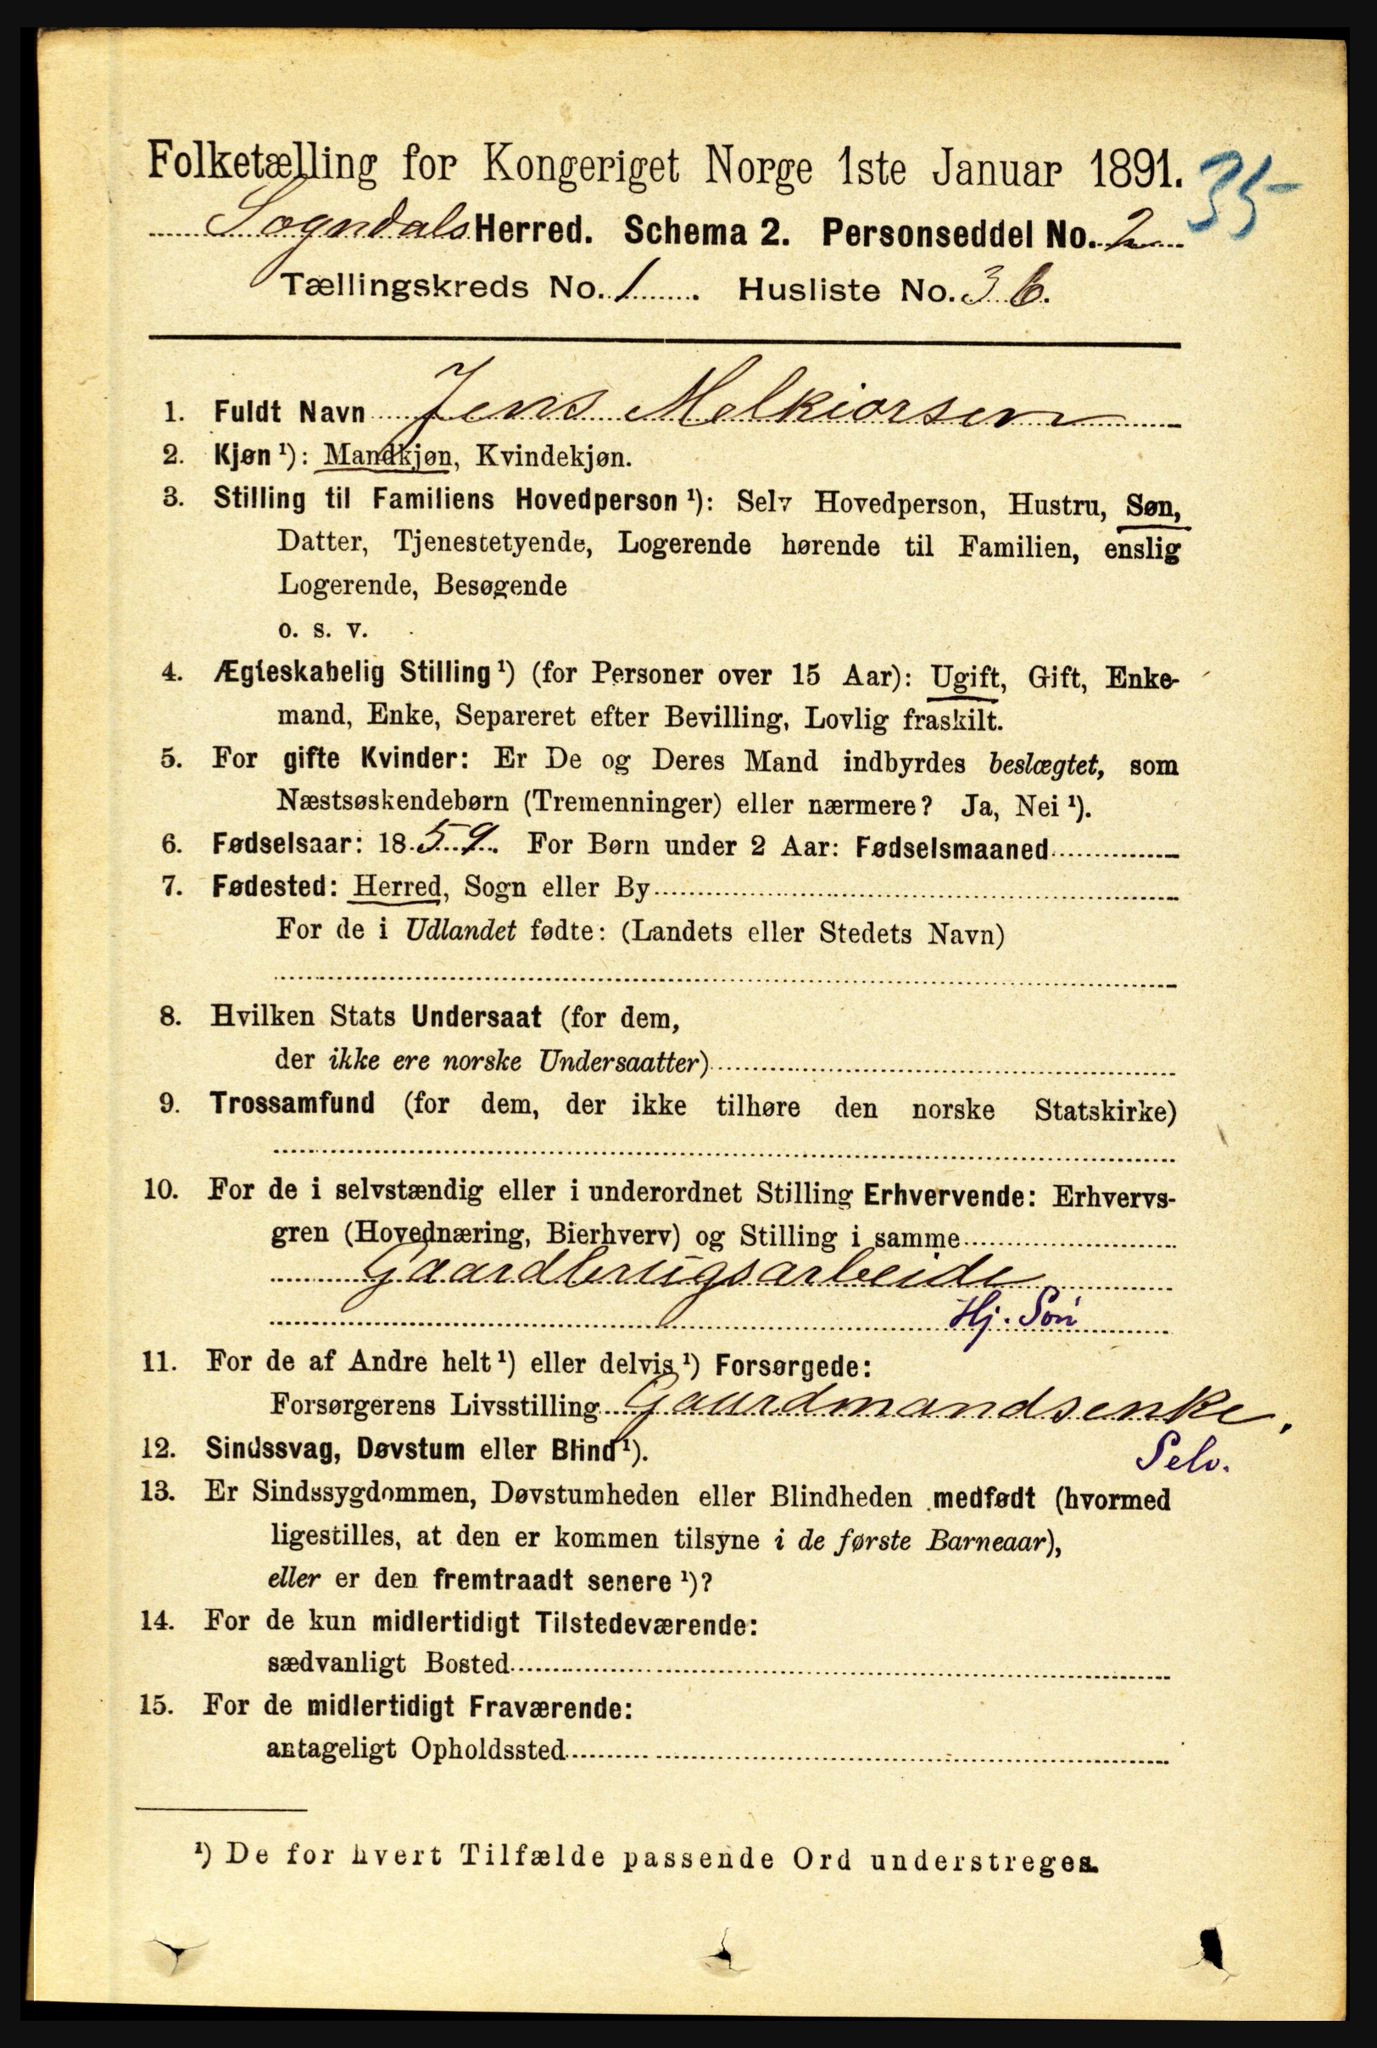 Folketælling for Kongeriget Norge 1ste Januar 1891. 35
Sogndals Herred. Schema 2. Personseddel No. 2
Tællingskreds No. 1. Husliste No. 36.
1. Fuldt Navn Jens Melkiorsen
2. Kjøn ¹): Mandkjøn, Kvindekjøn.
3. Stilling til Familiens Hovedperson ¹): Selv Hovedperson, Hustru, Søn,
Datter, Tjenestetyende, Logerende hørende til Familien, enslig
Logerende, Besøgende
o. s. v.
4. Ægteskabelig Stilling ¹) (for Personer over 15 Aar): Ugift, Gift, Enke-
mand, Enke, Separeret efter Bevilling, Lovlig fraskilt.
5. For gifte Kvinder: Er De og Deres Mand indbyrdes beslægtet, som
Næstsøskendebørn (Tremenninger) eller nærmere? Ja, Nei ¹).
6. Fødselsaar: 1859. For Børn under 2 Aar: Fødselsmaaned
7. Fødested: Herred, Sogn eller By
For de i Udlandet fødte: (Landets eller Stedets Navn)
8. Hvilken Stats Undersaat (for dem,
der ikke ere norske Undersaatter)
9. Trossamfund (for dem, der ikke tilhøre den norske Statskirke)
10. For de i selvstændig eller i underordnet Stilling Erhvervende: Erhvervs-
gren (Hovednæring, Bierhverv) og Stilling i samme
Gaardbrugsarbeide
Hj. Søn
11. For de af Andre helt ¹) eller delvis ¹) Forsørgede:
Forsørgerens Livsstilling Gaardmandsenke.
12. Sindssvag, Døvstum eller Blind ¹). Selv.
13. Er Sindssygdommen, Døvstumheden eller Blindheden medfødt (hvormed
ligestilles, at den er kommen tilsyne i de første Barneaar),
eller er den fremtraadt senere ¹)?
14. For de kun midlertidigt Tilstedeværende:
sædvanligt Bosted
15. For de midlertidigt Fraværende:
antageligt Opholdssted
¹) De for hvert Tilfælde passende Ord understreges.